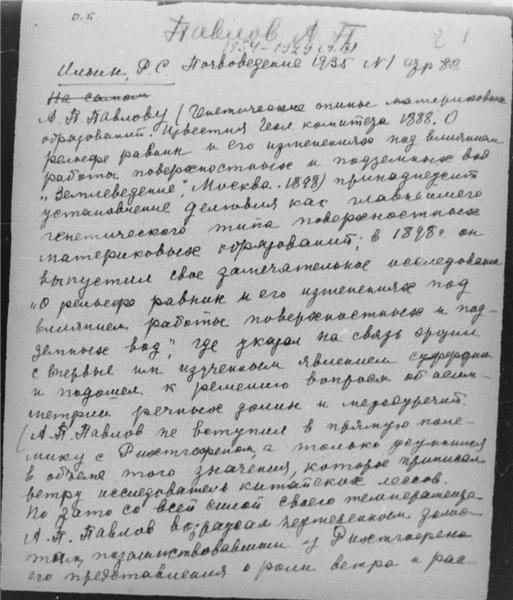 О.К
Павлов А П
1854-1929 (9.IX)
2 1
Ильин, Р.С Почвоведение 1935 N 1 стр 80
На самом
А.П. Павлову (Генетические типы материковых
образований. Известия Геол. комитета 1888. О
рельефе равнин и его изменениях под влиянием
работы поверхностных и подземных вод
„Землеведение", Москва. 1898) принадлежит
установление делювия как главнейшего
генетического типа поверхностных
материковых образований; в 1898г он
выпустил свое замечательное исследование
„О рельефе равнин и его изменениях под
влиянием работы поверхностных и под-
земных вод", где указал на связь
с впервые им изученным явлением суффозии
и подошел к решению вопроса об асим-
метрии речных долин и междуречий.
(А.П. Павлов не вступил в прямую поле-
мику с Рихтгофеном, а только усумнился
в объеме того значения, которое приписал
ветру исследователь китайских лессов.
Но зато со всей силой своего темперамента
А.П. Павлов возражал
позаимствовавшим у Рихтгофена
его представления о роли ветра в рас-